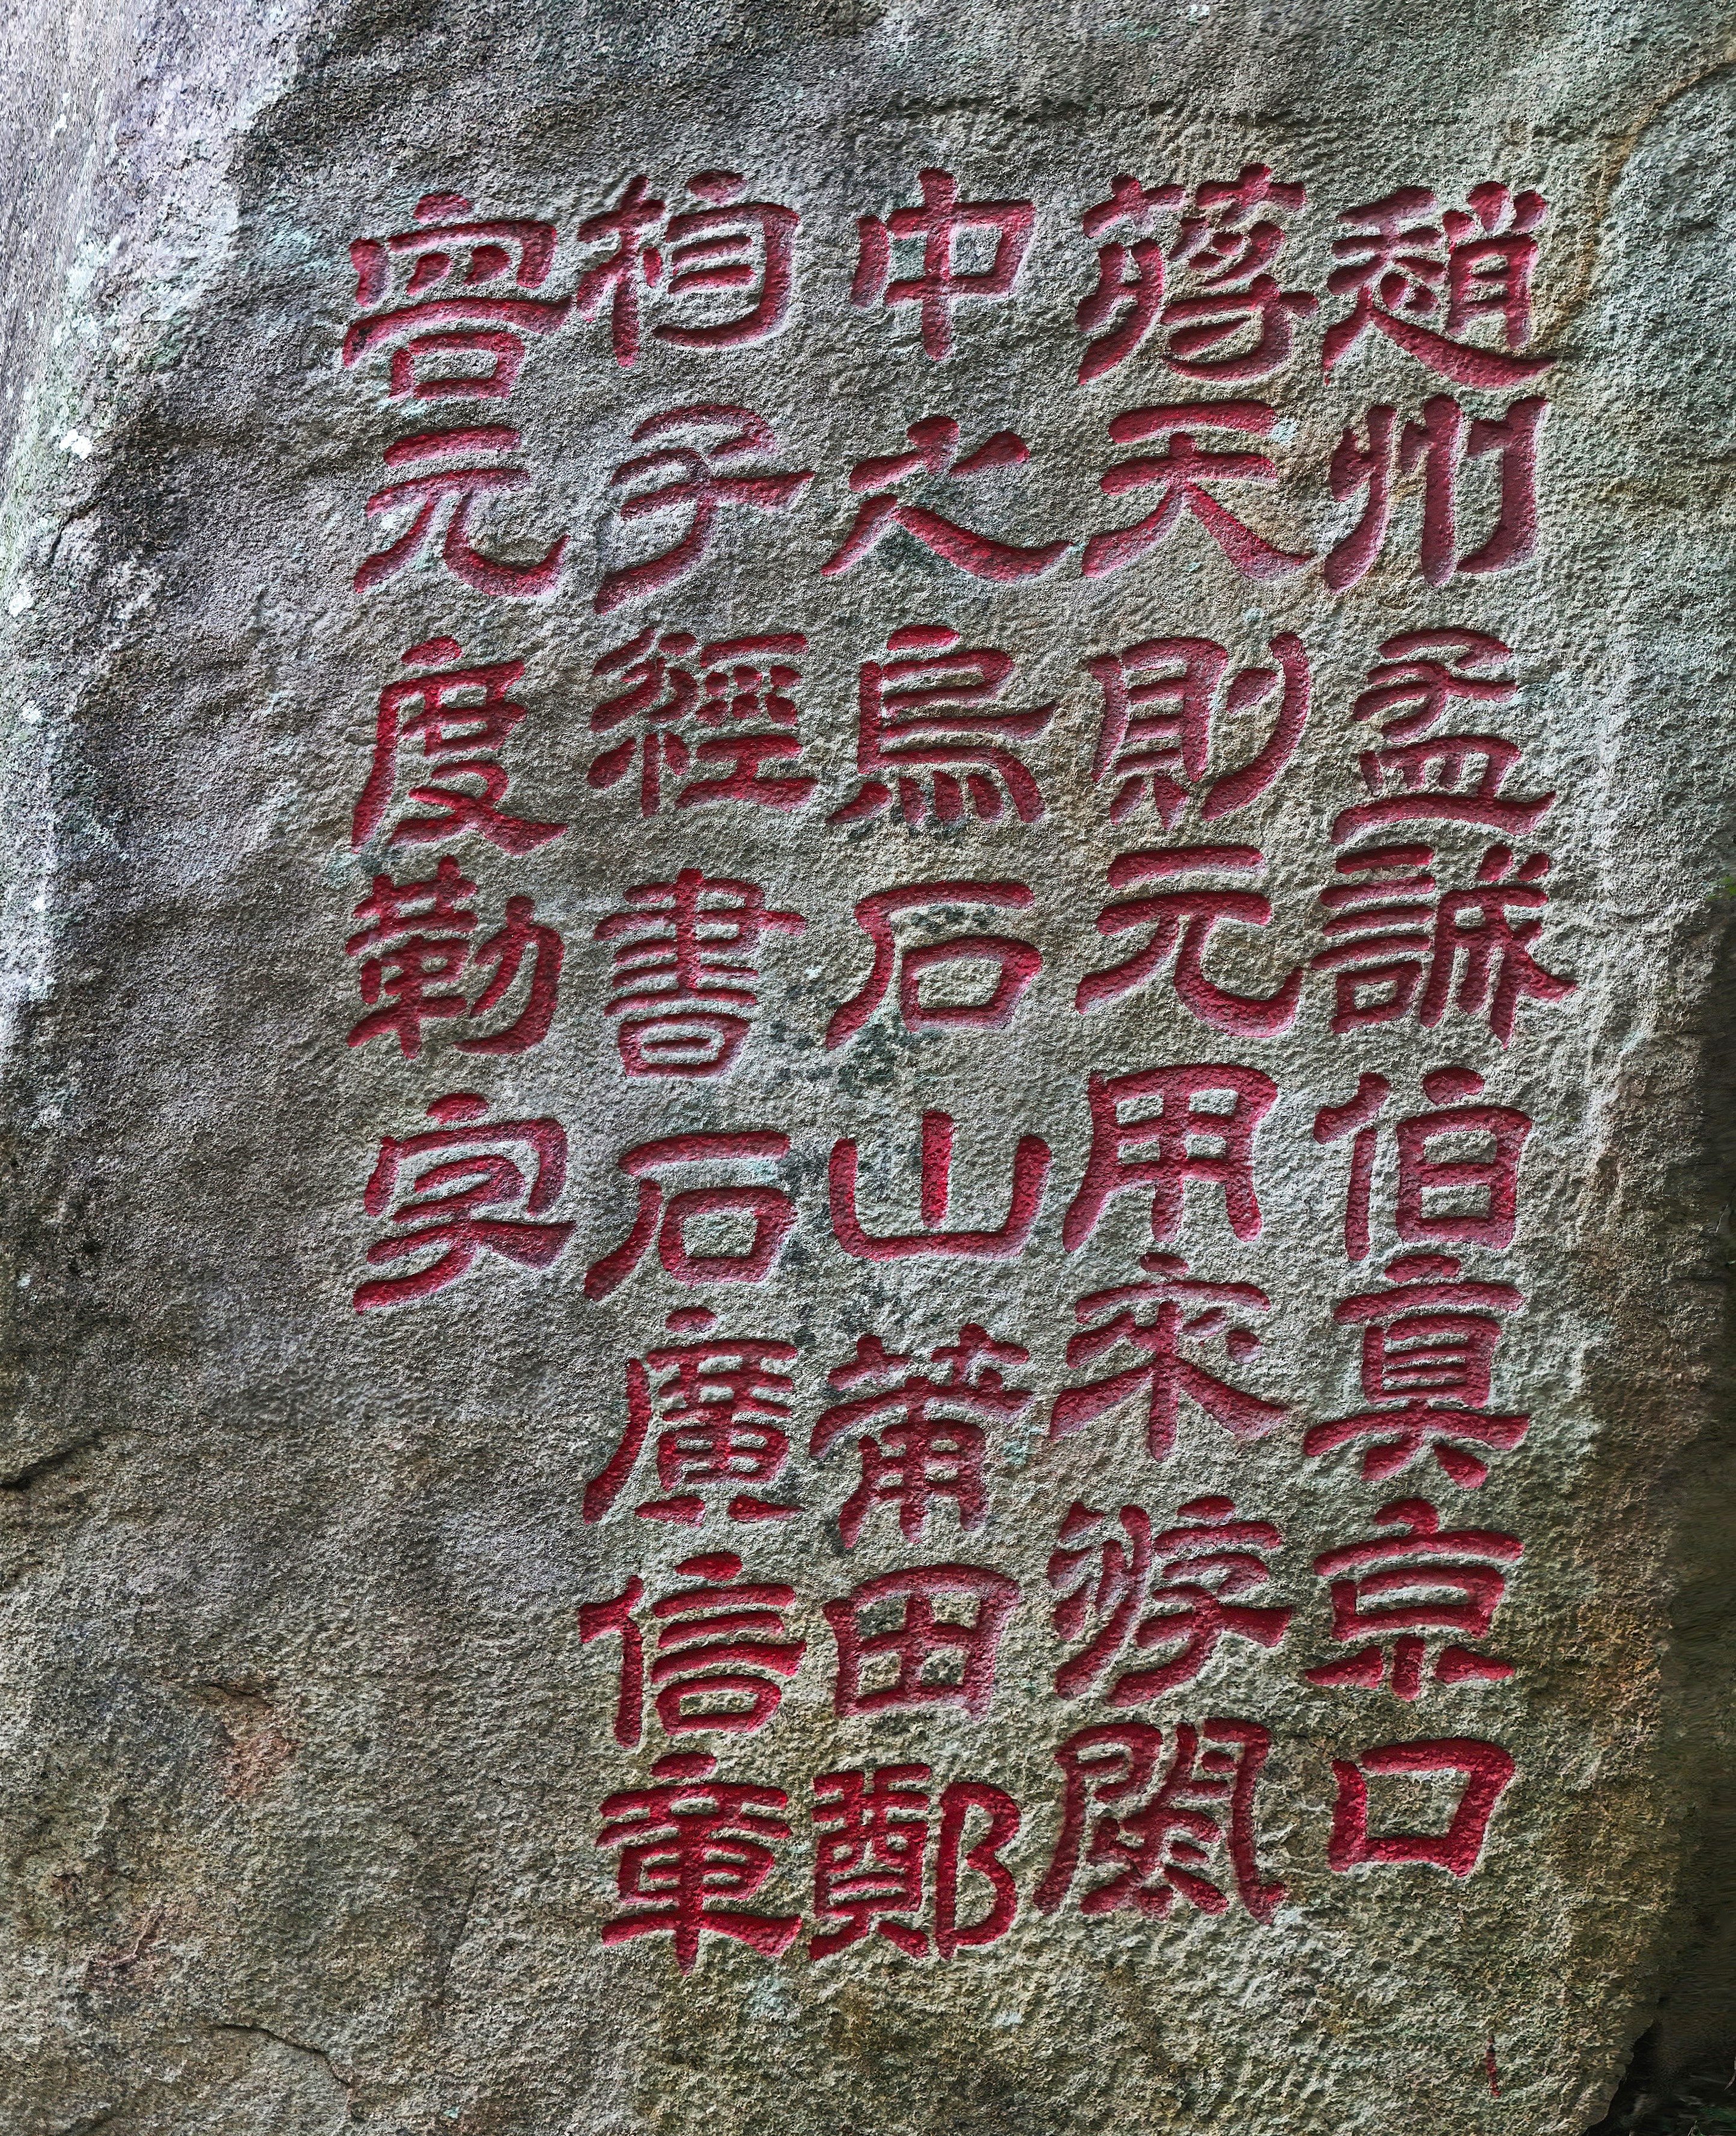 趙州孟伯真京口
蔣天則元用來游閩
中之烏石山莆田鄭
杓子經書石廣信章
元度勒字